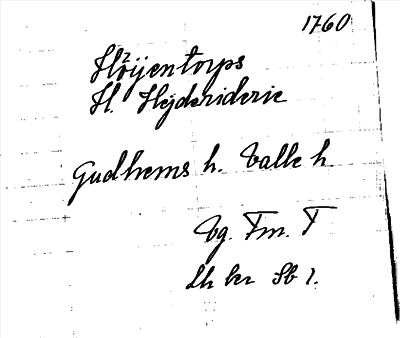 1760
Höijentorps
H. Hejderiderie
Gudhems h. Valle h.
Vg. Fm. F
Lh kr Sb 1.